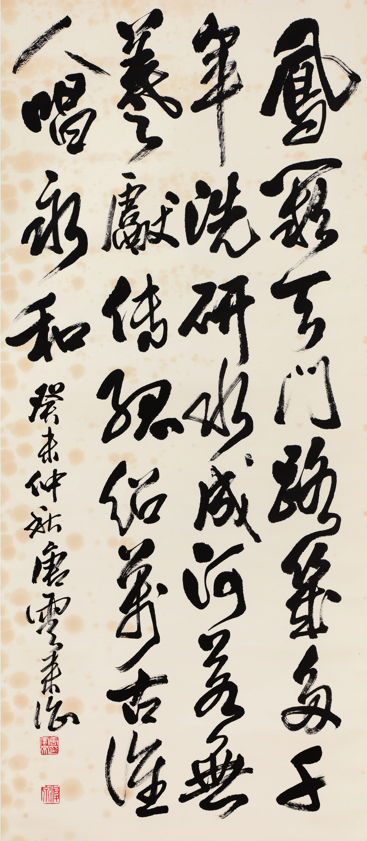 鳳闕天門路幾多千
年洗研水成河若無
羲獻傳紹萬古誰
人唱永和
癸未仲秋唐雲來